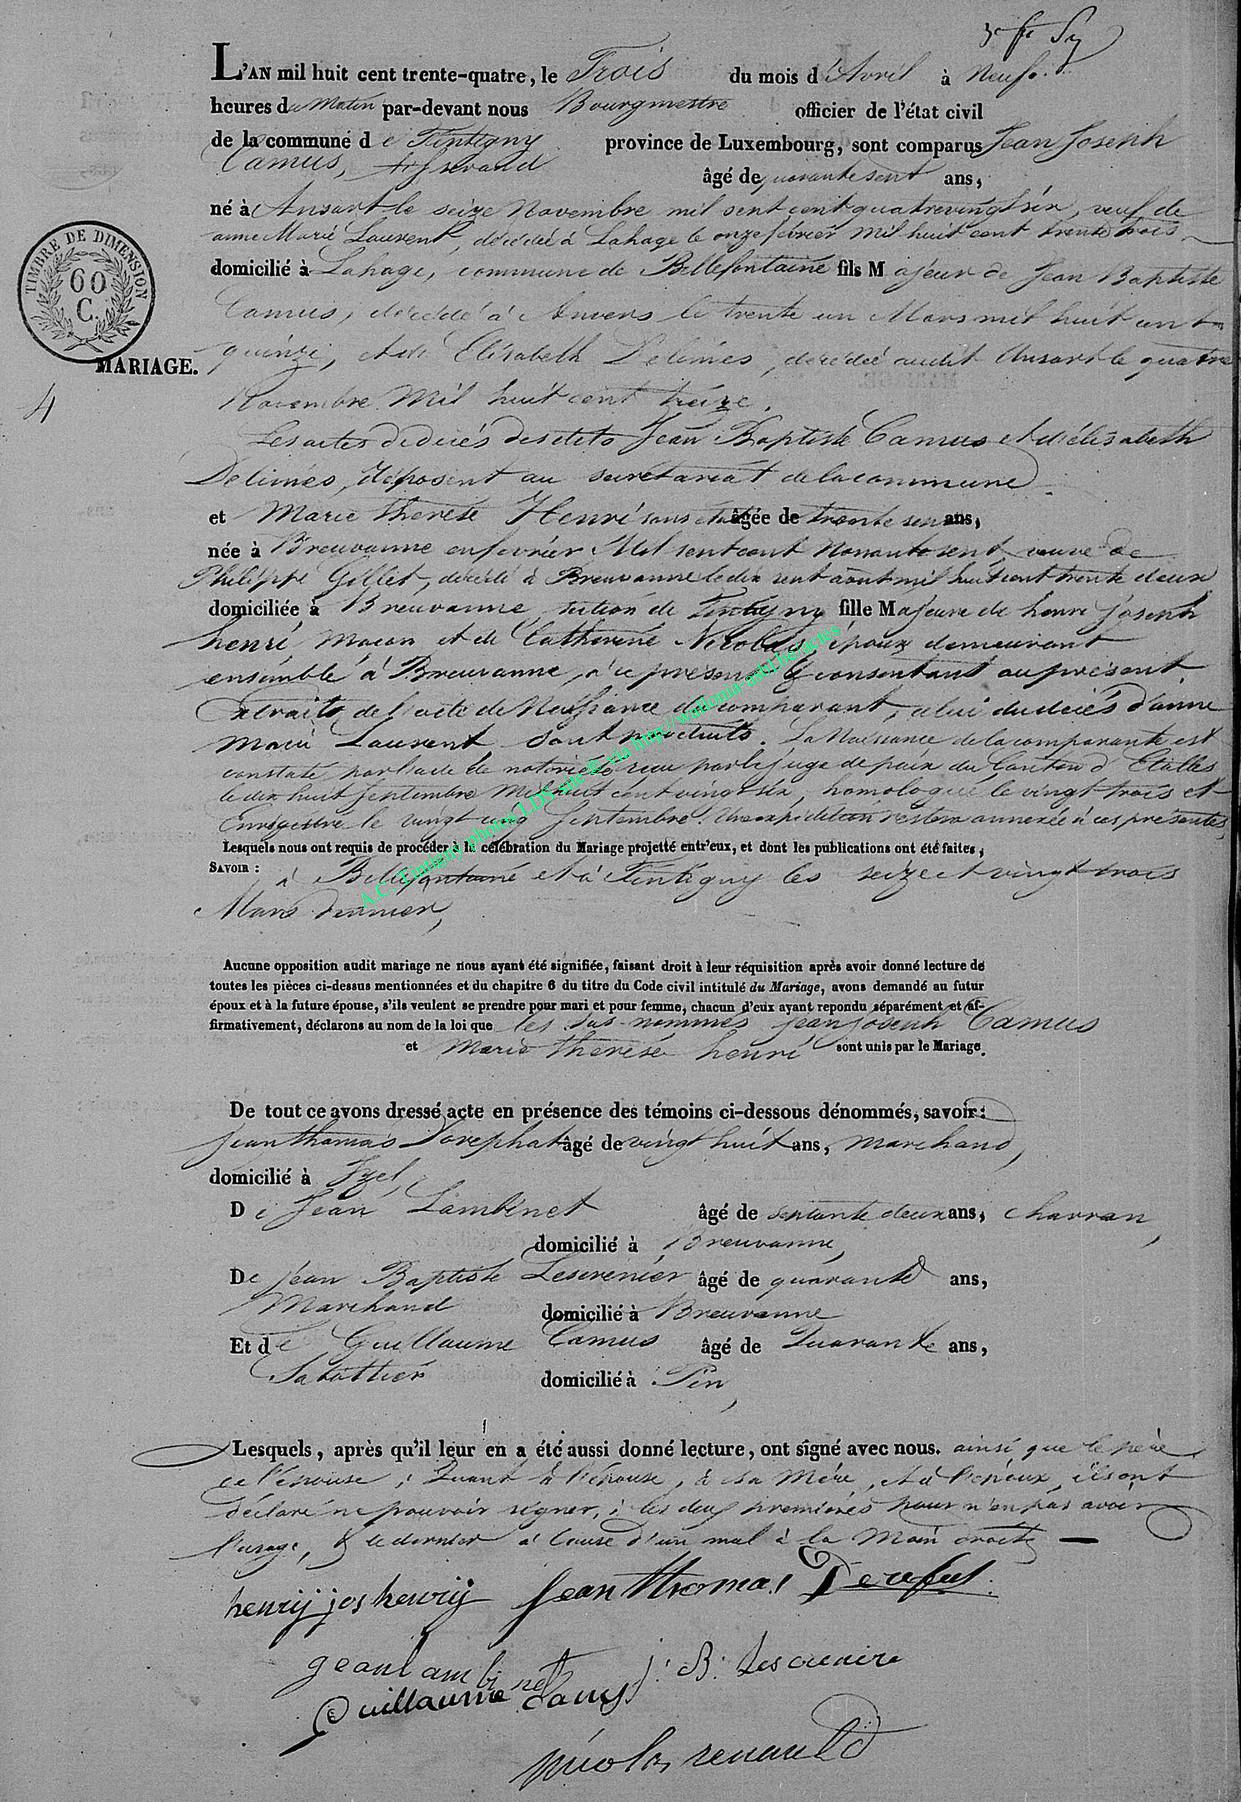 L'AN mil huit cent trente-quatre, le Trois du mois d'Avril à Neuf
heures du Matin par-devant nous Bourgmestre officier de l'état civil
de la commune de Tintigny province de Luxembourg, sont comparus Jean Joseph
Camus, âgé de quarante sept ans,
né à Ansart le seize Novembre mil sept cent quatrevingt six, veuf de
anne Marie Laurent, décédée à Lahage le onze février mil huit cent trente trois
domicilié à Lahage, commune de Bellefontaine fils Majeur de Jean Baptiste
Camus, décédé à Anvers le trente un Mars mil huit cent
quinze, et de Elisabeth Delimes, décédée audit Ansart le quatre
Novembre Mil huit cent treize.
Les actes de décés desdits Jean Baptiste Camus et d'élisabeth
Delimés, déposent au secretariat de la commune
et Marie therese Henri sans état âgée de trente sept ans,
née à Breuvanne en février Mil sept cent Nonante sept, veuve de
Philippe Gillet, décédé à Breuvanne le dix sept aout mil huit cent trente deux
domiciliée à Breuvanne, section de Tintigny fille Majeure de henri joseph
henri maçon et de Catherine Nicolas époux demeurant
ensemble à Breuvanne, à ce présent & consentant au présent
Extraits de l'acte de Naissance du comparant, celui du décés d'anne
Marie Laurent sont produits. La Naissance de la comparante est
constaté par l'acte de notoriété reçu par le juge de paix du Canton d'Etalles
le dix huit Septembre Mil huit cent vingt six, homologué le vingt trois et
Enregistré le vingt cinq Septembre. Une expédition restera annexée à ces présentes
Lesquels nous ont requis de procéder à la célébration du Mariage projetté entr'eux, et dont les publications ont été faites,
SAVOIR : à Bellefontaine et à Tintigny les seize et vingt trois
Mars dernier,
Aucune opposition audit mariage ne nous ayant été signifiée, faisant droit à leur réquisition après avoir donné lecture de
toutes les pièces ci-dessus mentionnées et du chapitre 6 du titre du Code civil intitulé du Mariage, avons demandé au futur
époux et à la future épouse, s'ils veulent se prendre pour mari et pour femme, chacun d'eux ayant repondu séparément et af-
firmativement, déclarons au nom de la loi que les sus-nommés jean joseph Camus
et Marie therese henri sont unis par le Mariage.
De tout ce avons dressé acte en présence des témoins ci-dessous dénommés, savoir :
jean thomas âgé de vingt huit ans, marchand,
domicilié à Izel,
De Jean Lambinet âgé de septante deux ans, charran,
domicilié à Breuvanne,
De jean Baptiste Lescrenier âgé de quarante ans,
Marchand domicilié à Breuvanne
Et de Guillaume Camus âgé de Quarante ans,
Sabottier domicilié à Pin,
Lesquels, après qu'il leur en a été aussi donné lecture, ont signé avec nous. ainsi que le père
de l'épouse ; Quant à l'épouse, à sa Mère, et à l'époux, ils ont
déclaré ne pouvoir signer, les deux premières pour n'en pas avoir
l'usage, & le dernier à Cause d'un mal à la Main droite
henrij jos henrij Jean thomas
jean lambinet j. B. Lescrenier
Guillaume Camus
nicolas renauld
TIMBRE DE DIMENSION
60
C.
MARIAGE.
4
A.C. Tintigny photos LDS site & via http://wallonia-asbl.be/actes